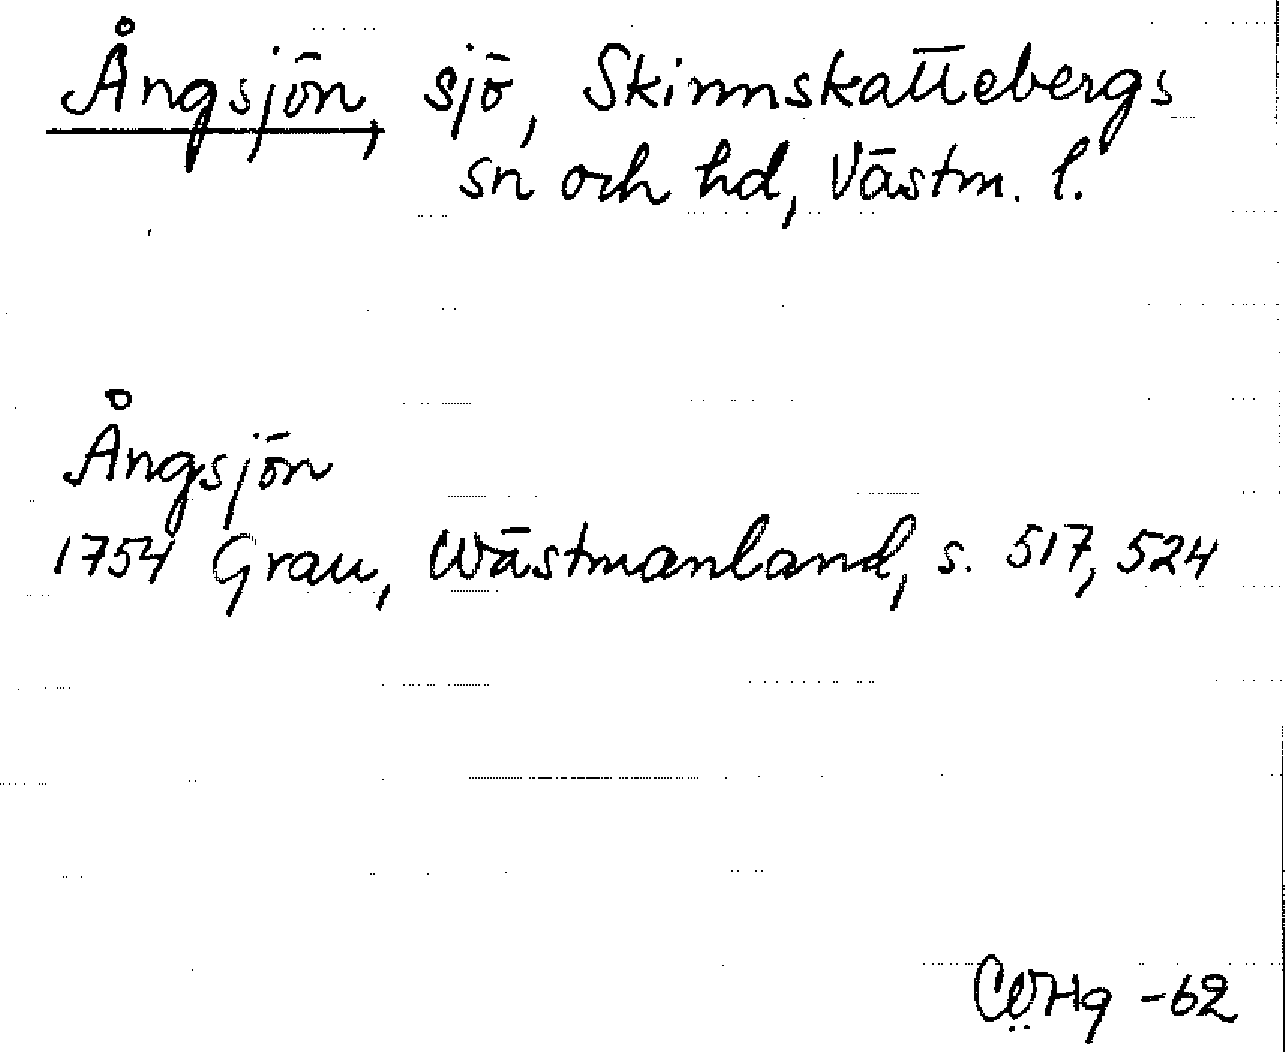 Ångsjön, sjö, Skinnskattebergs
sn och hd, Västm. l.
Ångsjön
1754 Grau, Wästmanland, s. 517, 524
-62